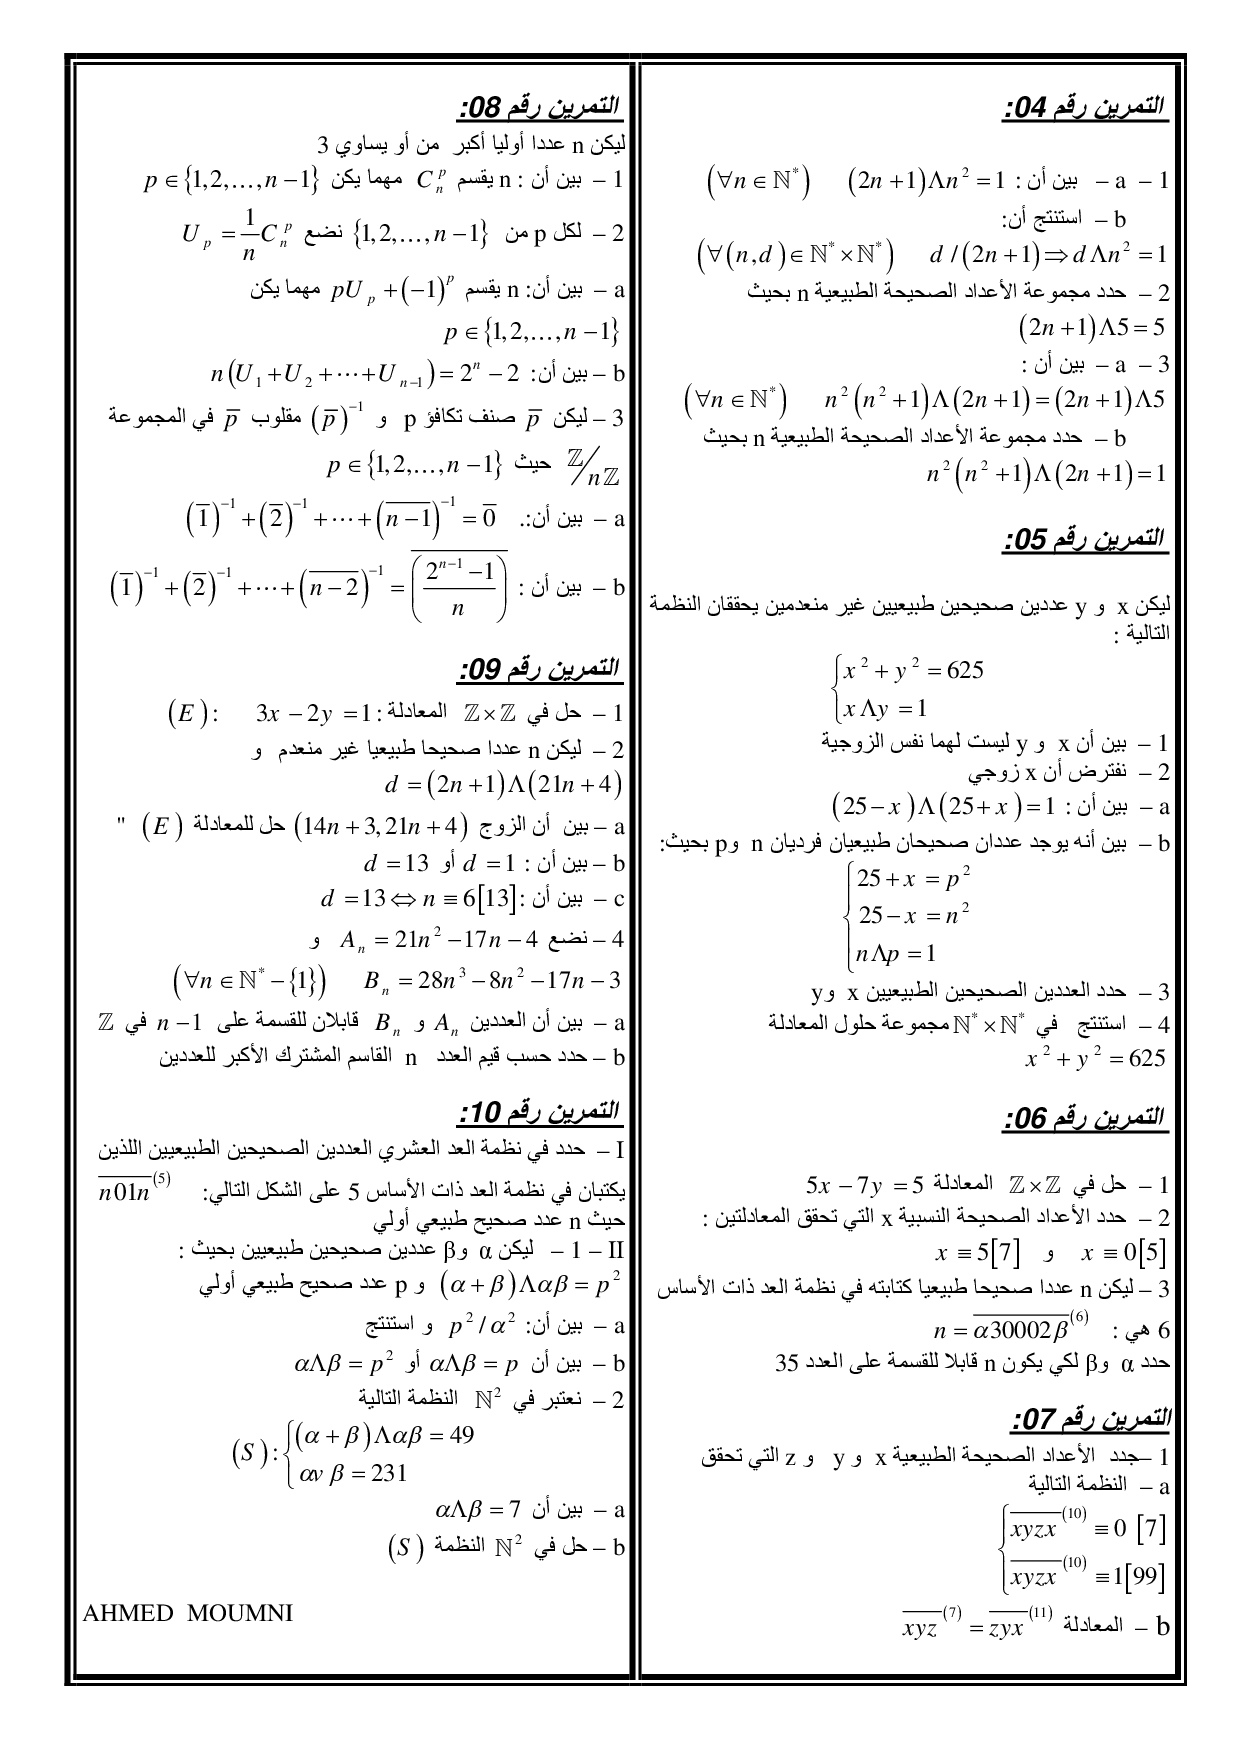 التمرين رقم 04:
1 – a – بين أن : (∀n ∈ ℕ*) (2n+1)Λn² = 1
b – استنتج أن:
(∀(n,d) ∈ ℕ*×ℕ*) d/(2n+1) ⇒ dΛn² = 1
2 – حدد مجموعة الأعداد الصحيحة الطبيعية n بحيث
(2n+1)Λ5 = 5
3 – a – بين أن :
(∀n ∈ ℕ*) n²(n²+1)Λ(2n+1) = (2n+1)Λ5
b – حدد مجموعة الأعداد الصحيحة الطبيعية n بحيث
n²(n²+1)Λ(2n+1) = 1
التمرين رقم 05:
ليكن x و y عددين صحيحين طبيعيين غير منعدمين يحققان النظمة
التالية :
{ x² + y² = 625
xΛy = 1
1 – بين أن x و y ليست لهما نفس الزوجية
2 – نفترض أن x زوجي
a – بين أن : (25−x)Λ(25+x) = 1
b – بين أنه يوجد عددان صحيحان طبيعيان فرديان n وp بحيث:
{ 25 + x = p²
25 − x = n²
nΛp = 1
3 – حدد العددين الصحيحين الطبيعيين x وy
4 – استنتج في ℕ*×ℕ* مجموعة حلول المعادلة
x² + y² = 625
التمرين رقم 06:
1 – حل في ℤ×ℤ المعادلة 5x − 7y = 5
2 – حدد الأعداد الصحيحة النسبية x التي تحقق المعادلتين :
x ≡ 0[5] و x ≡ 5[7]
3 – ليكن n عددا صحيحا طبيعيا كتابته في نظمة العد ذات الأساس
6 هي : n = \overline{α30002β}^{(6)}
حدد α وβ لكي يكون n قابلا للقسمة على العدد 35
التمرين رقم 07:
1 –جدد الأعداد الصحيحة الطبيعية x و y و z التي تحقق
a – النظمة التالية
{ \overline{xyzx}^{(10)} ≡ 0 [7]
\overline{xyzx}^{(10)} ≡ 1[99]
b – المعادلة \overline{xyz}^{(7)} = \overline{zyx}^{(11)}
التمرين رقم 08:
ليكن n عددا أوليا أكبر من أو يساوي 3
1 – بين أن : n يقسم C_n^p مهما يكن p ∈ {1,2,…,n−1}
2 – لكل p من {1,2,…,n−1} نضع U_p = \frac{1}{n}C_n^p
a – بين أن: n يقسم pU_p + (−1)^p مهما يكن
p ∈ {1,2,…,n−1}
b – بين أن: n(U_1 + U_2 + ⋯ + U_{n−1}) = 2^n − 2
3 – ليكن \overline{p} صنف تكافؤ p و (\overline{p})^{−1} مقلوب \overline{p} في المجموعة
ℤ/nℤ حيث p ∈ {1,2,…,n−1}
a – بين أن:. (\overline{1})^{−1} + (\overline{2})^{−1} + ⋯ + (\overline{n−1})^{−1} = \overline{0}
b – بين أن : (\overline{1})^{−1} + (\overline{2})^{−1} + ⋯ + (\overline{n−2})^{−1} = \overline{(\frac{2^{n−1}−1}{n})}
التمرين رقم 09:
1 – حل في ℤ×ℤ المعادلة : (E): 3x − 2y = 1
2 – ليكن n عددا صحيحا طبيعيا غير منعدم و
d = (2n+1)Λ(21n+4)
a – بين أن الزوج (14n+3, 21n+4) حل للمعادلة (E) "
b – بين أن : d = 1 أو d = 13
c – بين أن : d = 13 ⇔ n ≡ 6[13]
4 – نضع A_n = 21n² − 17n − 4 و
(∀n ∈ ℕ* − {1}) B_n = 28n³ − 8n² − 17n − 3
a – بين أن العددين A_n و B_n قابلان للقسمة على n−1 في ℤ
b – حدد حسب قيم العدد n القاسم المشترك الأكبر للعددين
التمرين رقم 10:
I – حدد في نظمة العد العشري العددين الصحيحين الطبيعيين اللذين
يكتبان في نظمة العد ذات الأساس 5 على الشكل التالي: \overline{n01n}^{(5)}
حيث n عدد صحيح طبيعي أولي
II – 1 – ليكن α وβ عددين صحيحين طبيعيين بحيث :
(α+β)Λαβ = p² و p عدد صحيح طبيعي أولي
a – بين أن: p²/α² و استنتج
b – بين أن αΛβ = p أو αΛβ = p²
2 – نعتبر في ℕ² النظمة التالية
(S): { (α+β)Λαβ = 49
αvβ = 231
a – بين أن αΛβ = 7
b – حل في ℕ² النظمة (S)
AHMED MOUMNI